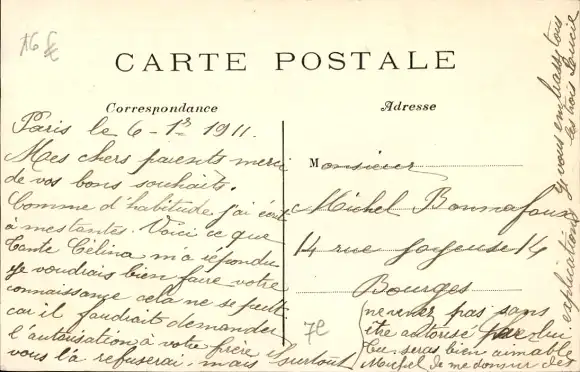 A6 £
CARTE POSTALE
Correspondance
Adresse
Paris le 6-1r 1911.
Mes chers parents merci
de vos bons souhaits.
Comme d'habitude, j'ai écrit
à mes tantes. Voici ce que
Tante Célina m'a répondu
je voudrais bien faire votre
connaissance cela ne se peut
car il faudrait demander
l'autorisation à votre frère il
vous l'a refuserai, mais surtout
Monsieur
Michel Bonnafoux
14 rue Joyeuse 14
Bourges
7E
ne venez pas sans
être autorisé par lui
Tu seras bien aimable
Michel de me donner des
explications je vous embrasse tous
les trois Lucie